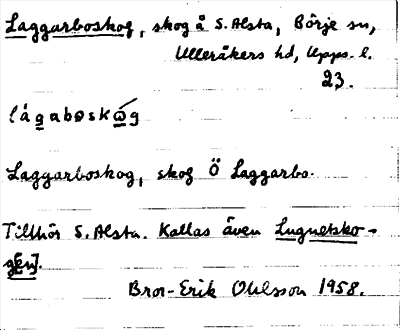 Laggarboskog, skog å S. Alsta, Börje sn,
Ulleråkers hd, Upps. l.
23.
lágabɷskɷ̀g
Laggarboskog, skog Ö Laggarbo.
Tillhör S. Alsta. Kallas även Lugnetsko-
g[en].
Bror-Erik Ohlsson 1958.